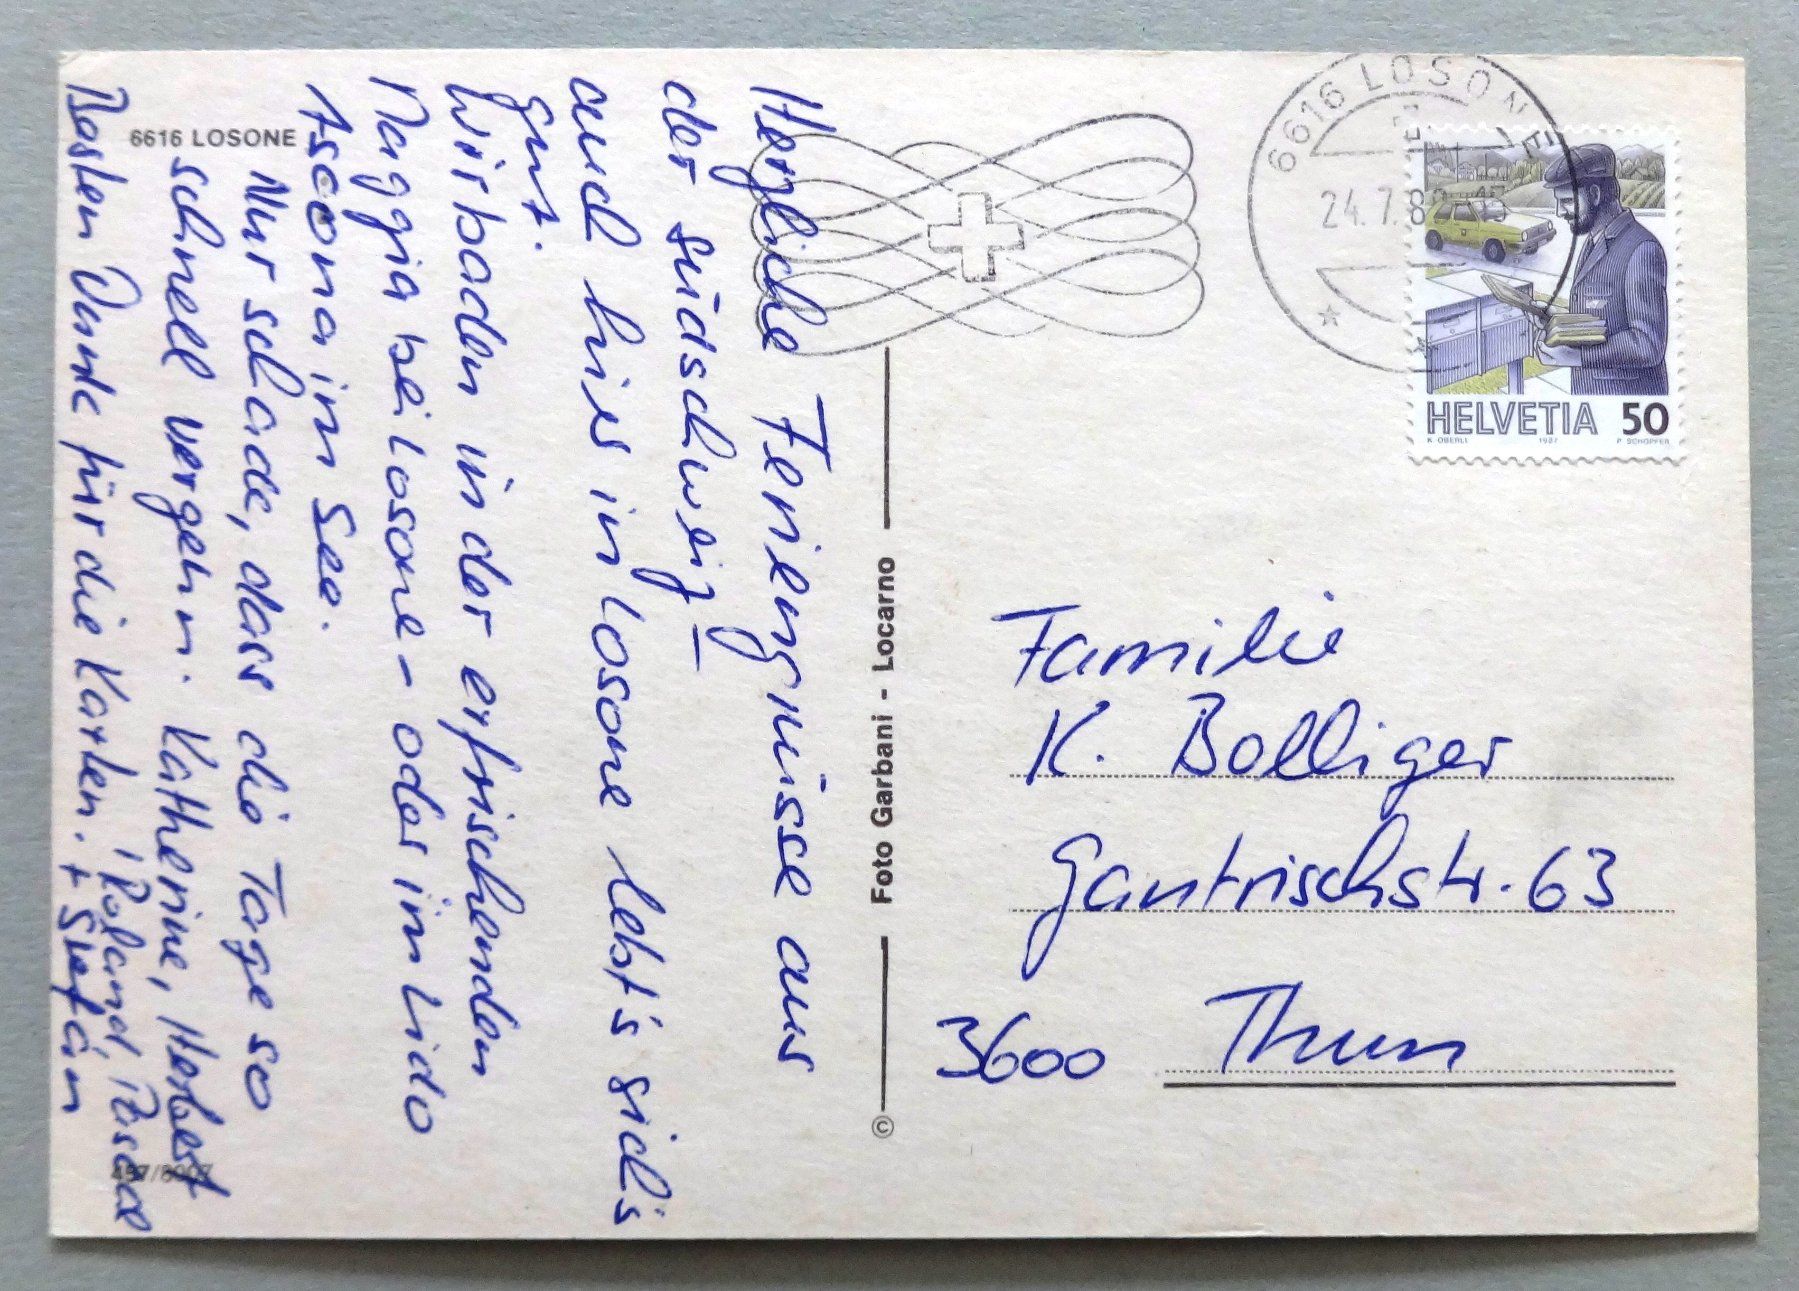 6616 LOSONE
Herzliche Feriengrüsse aus
der Südschweiz –
auch hier in Losone lebt's sich's
gut.
Wir baden in der erfrischenden
Maggia bei Losone – oder im Lido
Ascona im See.
Nur schade, dass die Tage so
schnell vergehn. Katherine, Herbert
, Roland,
Besten Dank für die Karten. + Stefan
Foto Garbani - Locarno
©
6616 LOSONE
24.7.8
HELVETIA 50
K OBERLI 1987 P SCHOPFER
Familie
K. Bolliger
Gantrischstr. 63
3600 Thun